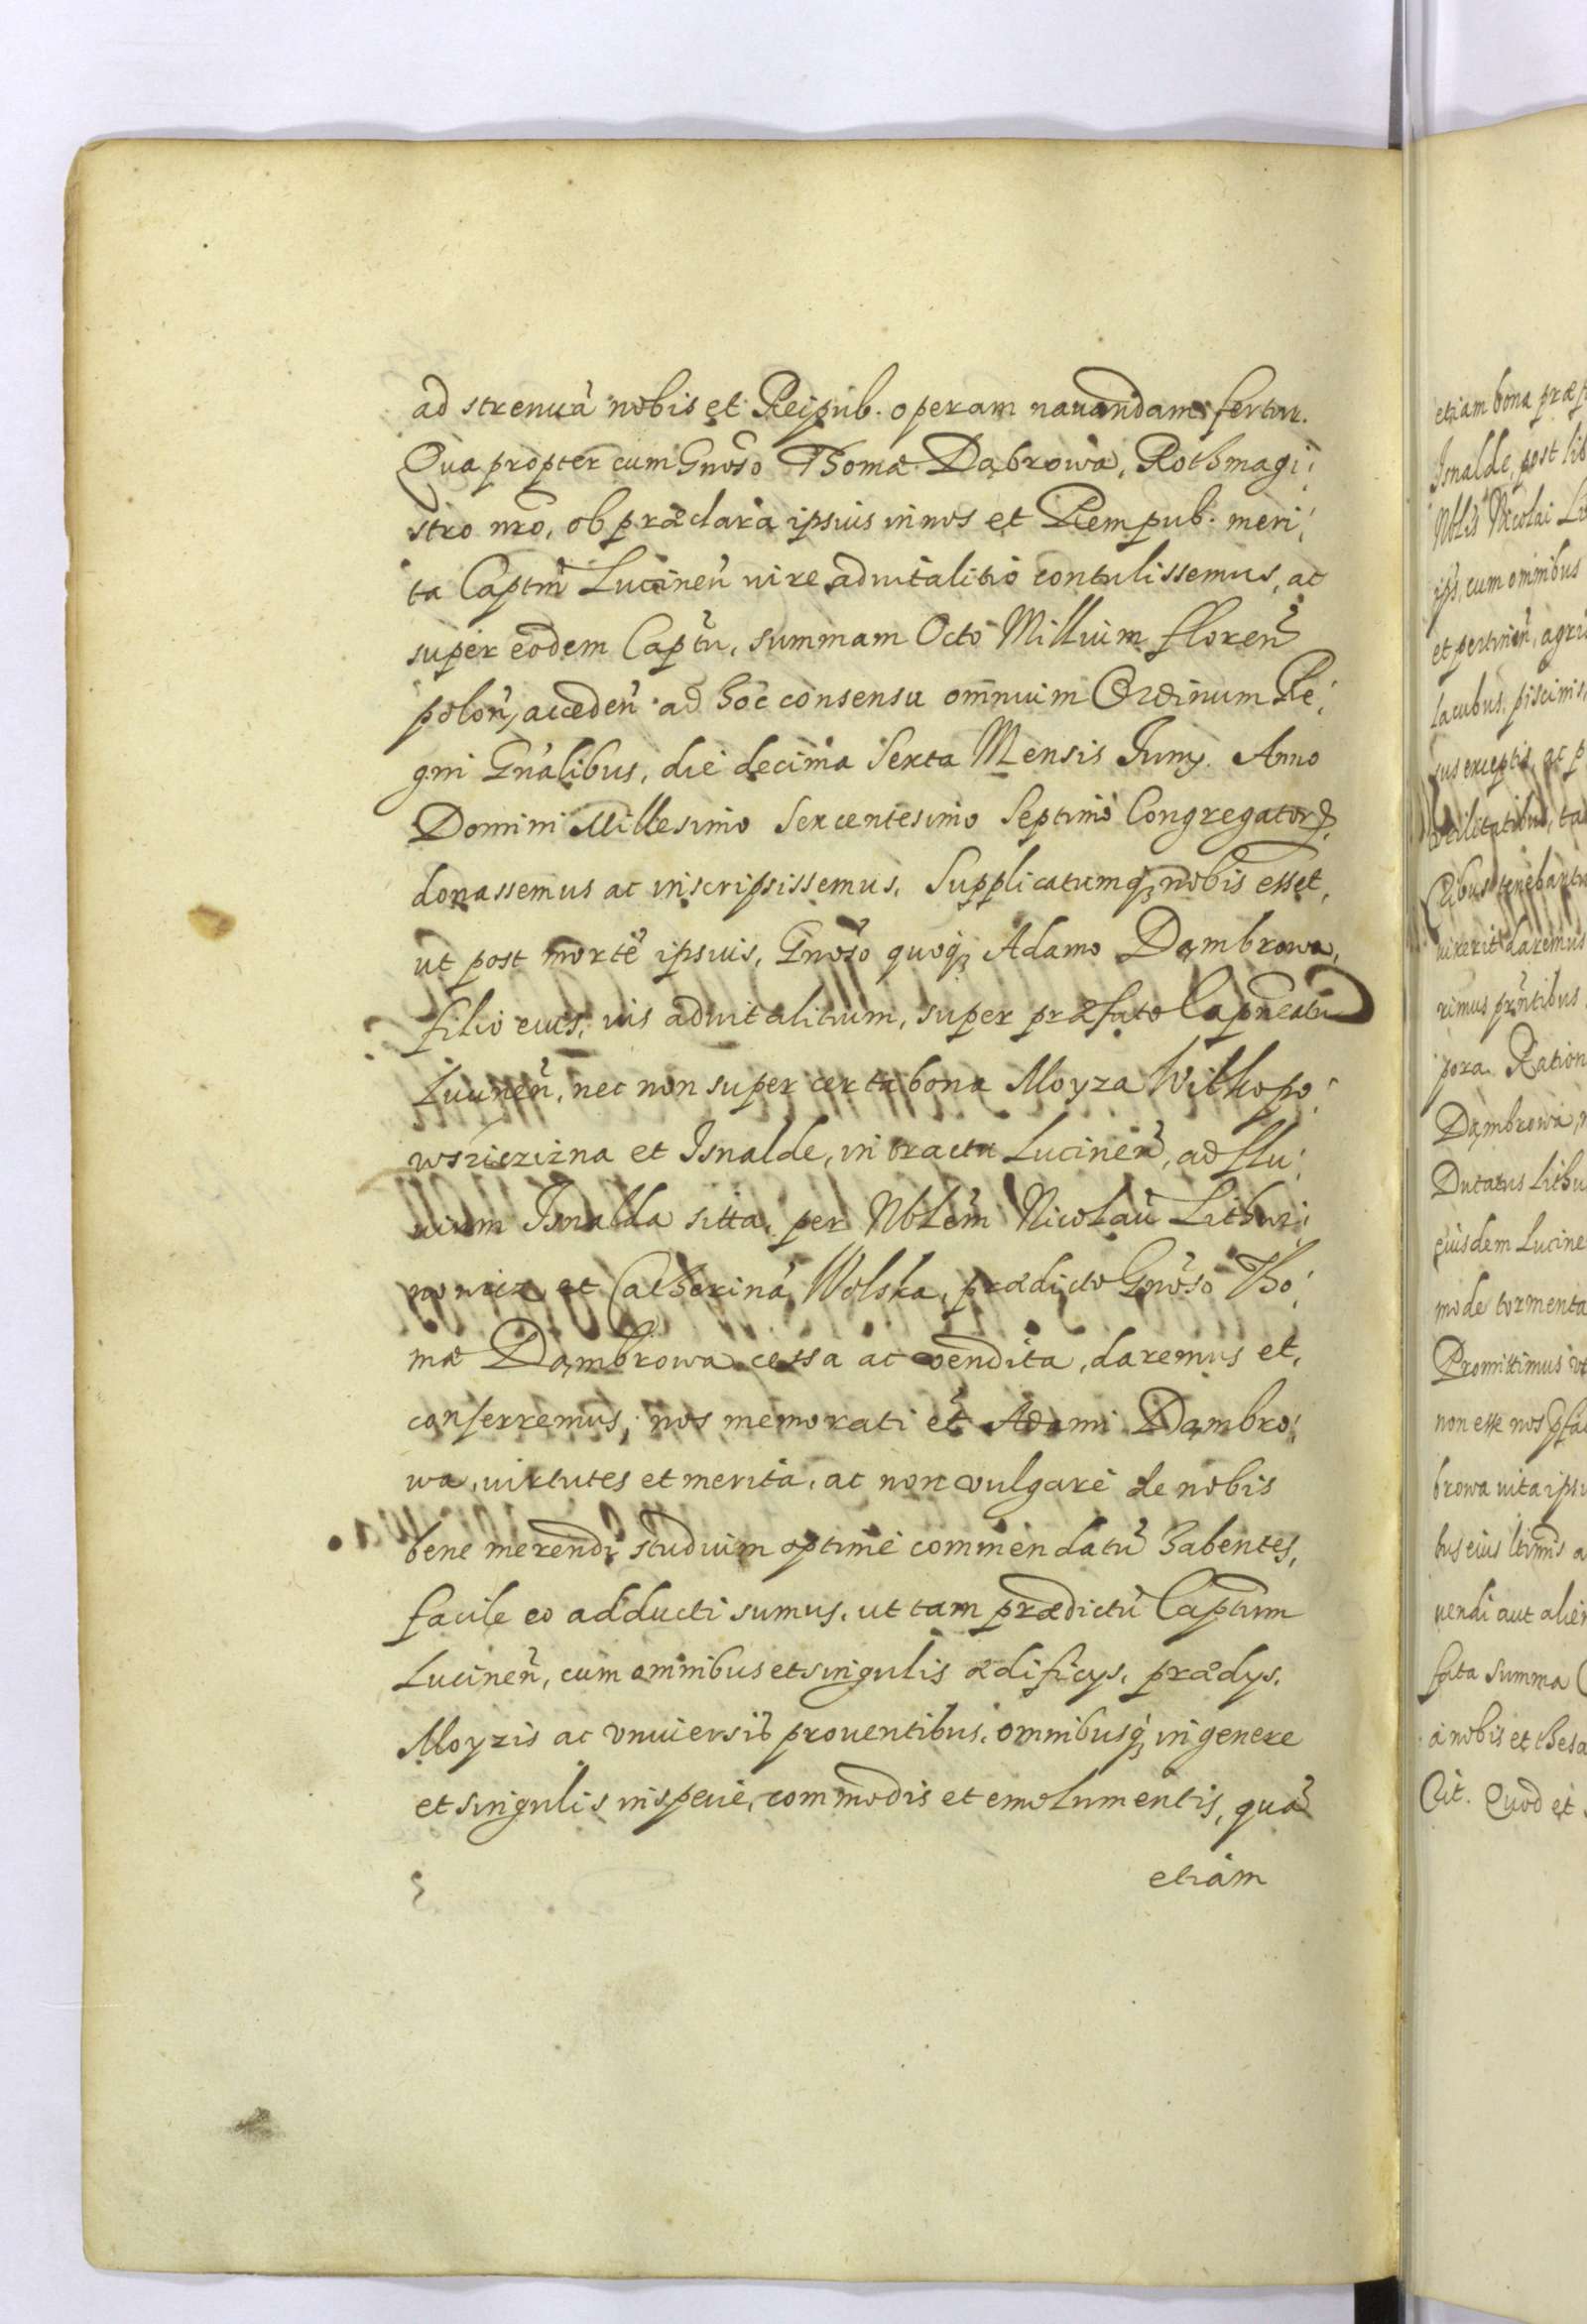 ad strenuã nobis et Reipub. operam nauandam fertur.
Qua propter cum Gnõso Thomæ Dąbrowa, Rothmagi:
stro nrõ, ob præclara ipsius in nos et Rempub. meri:
ta Captm̃ Lucineñ iure aduitalitio contulissemus, ac
super eodem Captũ, summam Octo Millium floreñ
poloñ, accedeñ ad hoc consensu omnium Ordinum Re:
gni Gñalibus, die decima Sexta Mensis Iunÿ. Anno
Domini Millesimo Sexcentesimo Septimo Congregator
donassemus ac inscripsissemus, Supplicatumq; nobis esset,
ut post mortẽ ipsius, Gnõso quoq; Adamo Dąmbrowa,
filio eius, ius aduitalitium, super præfato Capneatu
Lucineñ, nec non super certa bona Moyza Witkopo:
wszczizna et Isnalde, in tractu Lucineñ, ad flu:
uium Isnalda sitta, per Nblẽm Nicolaũ Lithwi:
nowicz et Catherinã Wolska, prædicto Gnõso Tho:
mæ Dąmbrowa cessa ac vendita, daremus et,
conferremus, nos memorati et̃ Adami Dąmbro:
wa, uirtutes et merita, ac non vulgare de nobis
bene merendi studium optime commendatũ habentes,
facile eo adducti sumus, ut tam prædictũ Captum
Lucineñ, cum omnibus et singulis ædificÿs, prædÿs,
Moyzis ac vniuersis prouentibus, omnibusq; in genere
et singulis in specie, commodis et emolumentis, quã
etiam
etiam bona præf
Isnalde, post
Nblis Nicolai
cum omnibus
et pertineñ, agri
lacubus, piscinis,
exceptis, ac p
utilitatibus, ta
tenebantu
uixerit daremus
rimus prñtibus
pora. Ration
Dąmbrowa,
Ducatus Lithu
eiusdem Lucine
mode tormenta
Promittimus
non esse nos
browa uita ipsi
bus eius
uendi aut alien
fata Summa
a nobis et thesa
Quod et